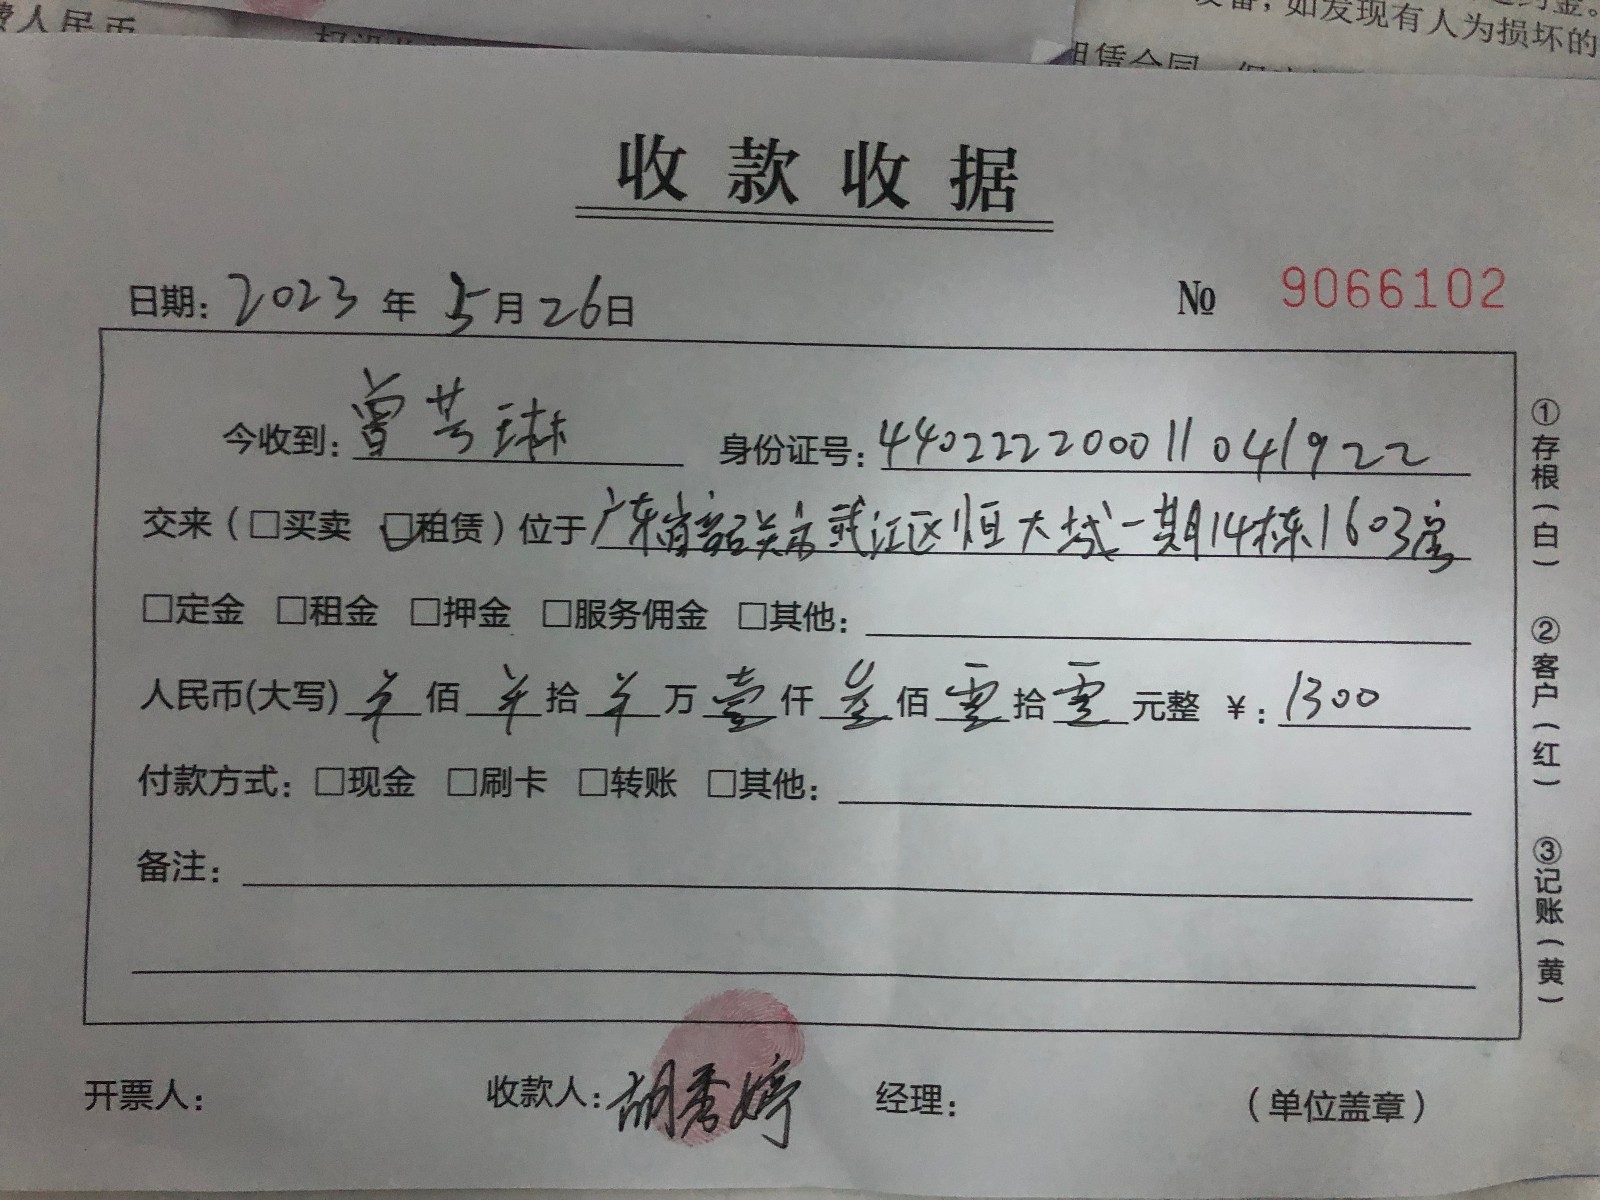 费人民币
设备，如发现有人为损坏的
租赁合同
收款收据
日期：2023年5月26日 № 9066102
今收到：曾芸琳 身份证号：440222200011041922
交来（□买卖 □租赁）位于广东省韶关市武江区恒大城一期14栋1603房
□定金 □租金 □押金 □服务佣金 □其他：
人民币(大写)羊佰羊拾羊万壹仟叁佰零拾零元整 ¥：1300
付款方式：□现金 □刷卡 □转账 □其他：
备注：
开票人： 收款人：胡秀婷 经理： （单位盖章）
①存根（白） ②客户（红） ③记账（黄）